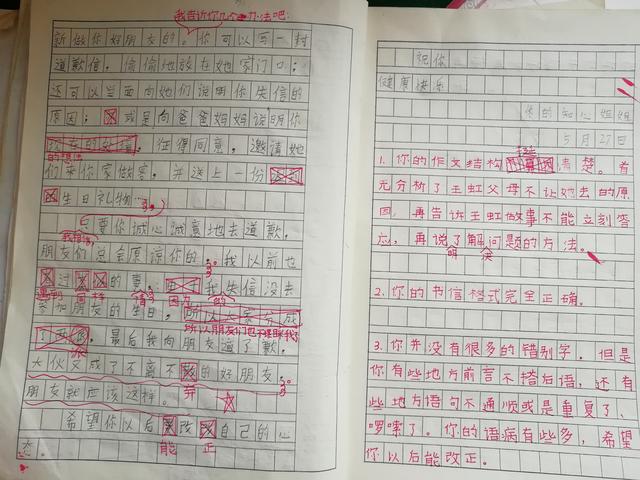 我告诉你几个办法吧:
新做你好朋友的。你可以写一封
道歉信。偷偷地放在她家门口;
还可以当面向她们说明你失信的
原因;或是向爸爸妈妈说明你
现在的处境。征得同意,邀请她
的想法
们来你家做客,并送上一份
生日礼物
只要你诚心诚意地去道歉,
我相信
朋友们总会原谅你的。我以前也
过的事,我失信没去
遇到 同样 情 因为 的
参加朋友的生日,所以大家
所以朋友们也不理睬我
最后我向朋友道了歉,
大伙又成了不离不的好朋友。
弃
朋友就应该这样。
希望你以后改自己的心
能 正
态。
祝你
健康快乐
你的知心姐姐
5月27日
1.你的作文结构清楚。首
先分析了王虹父母不让她去的原
因,再告诉王虹做事不能立刻答
应,再说了解问题的方法。
明 决
2.你的书信格式完全正确。
3.你并没有很多的错别字。但是
你有些地方前言不搭后语,还有
些地方语句不通顺或是重复了、
啰嗦了。你的语病有些多,希望
你以后能改正。